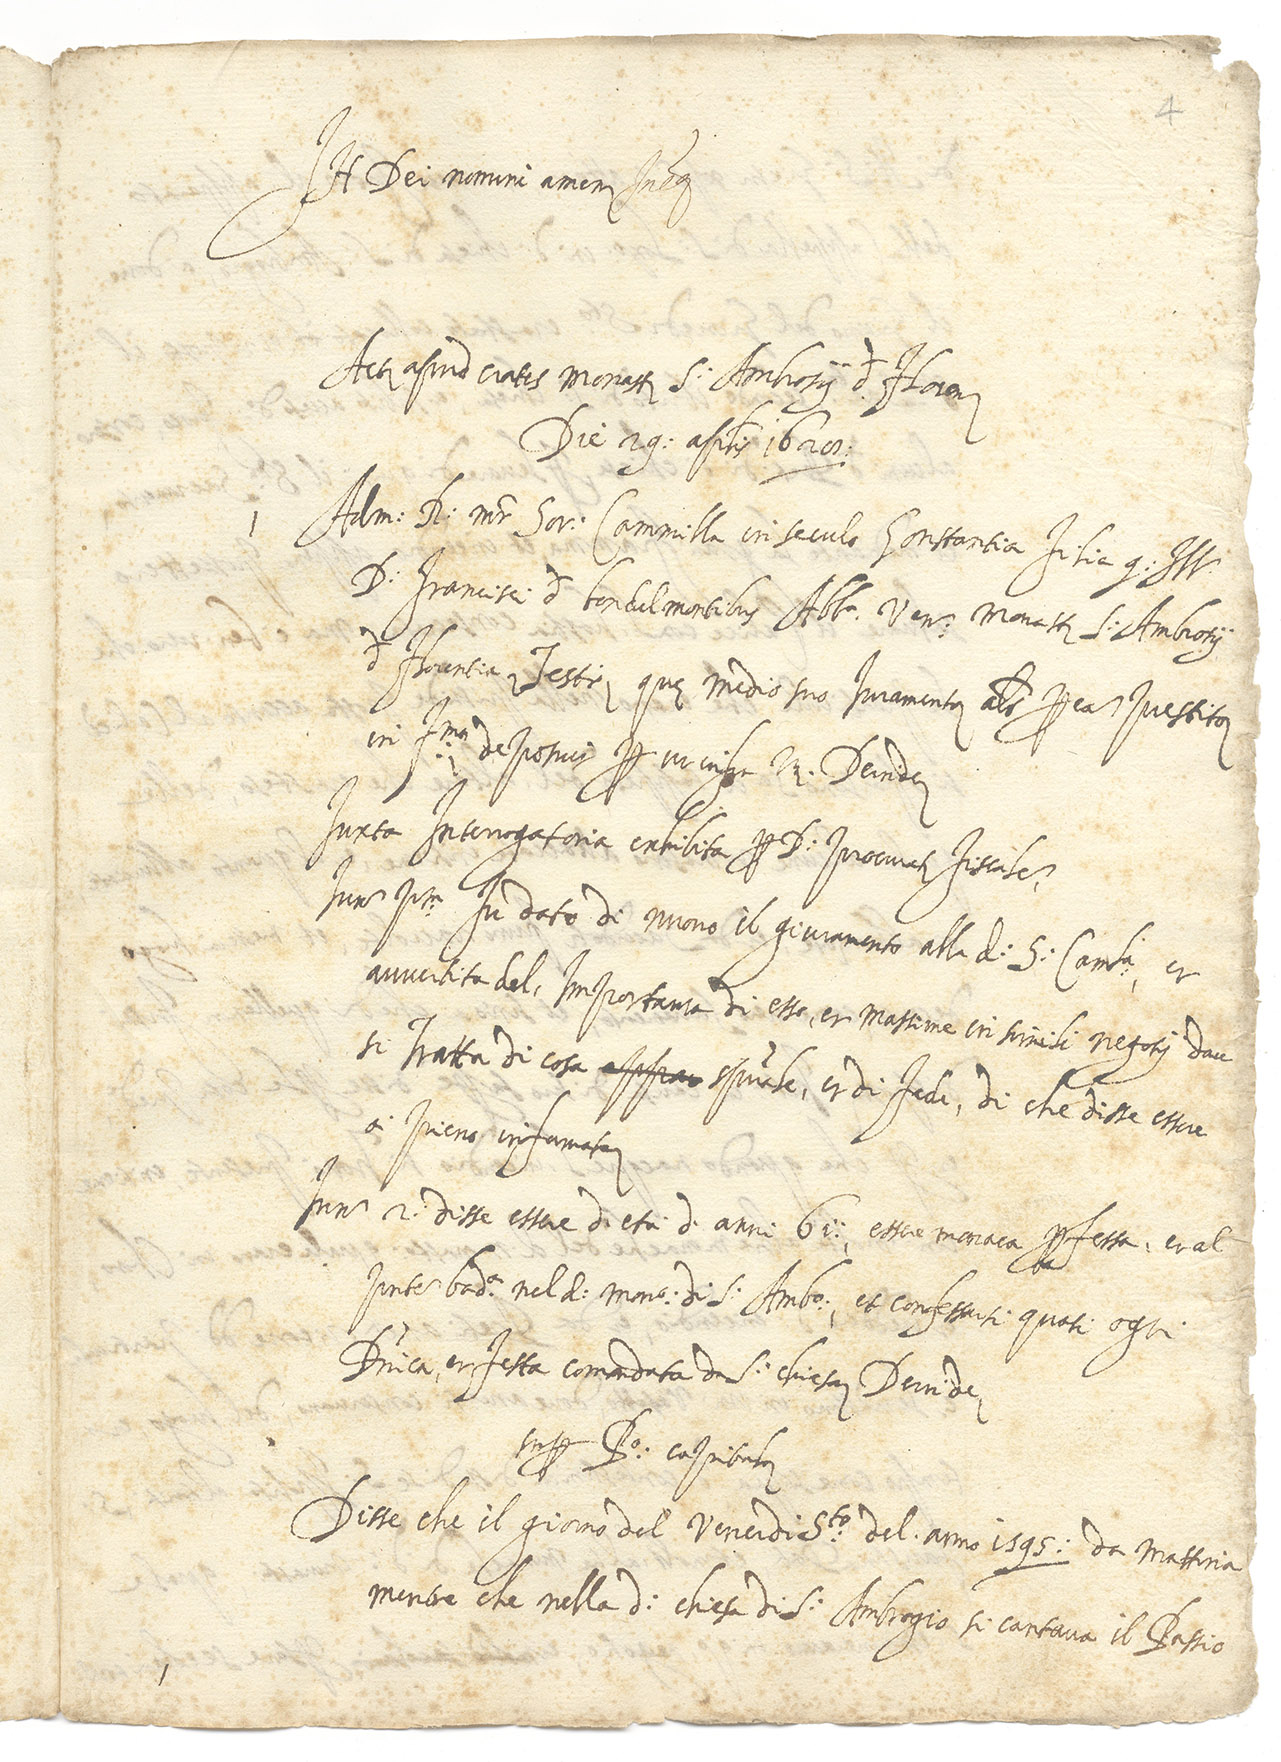 4
In Dei nomini amen
Acta apud crates monast S: Ambrosij d. Floren
Die 29: aplis
1 Adm: R: mr Sor: Cammilla in seculo Constantia filia q: Ill
D: Francisci d bondelmontibus Abb. Ven: monast S: Ambrosij
d Florentia Testis que medio suo Iuramento als p ea prestito
in deposuit p Deinde
Iuxta Interrogatoria exhibita p D: procurat fiscale
pm fu dato di nuovo il giuramento alla d: S: Camla, et
avvertita del, Importanza di esso, et massime in simili negotij dove
si tratta di cosa spūale, et di fede, di che disse essere
a pieno informata
2: disse essere d età d: anni essere monaca pfessa, et al
nel d: mon: di S: Ambo:, et confessarsi quasi ogni
Dnica, et festa comandata da S: chiesa Deinde
sup P.o: capitulo
Disse che il giorno del Venerdi Sto: del anno 1595: da mattina
mentre che nella d: chiesa di S: Ambrogio si cantava il Passio
1